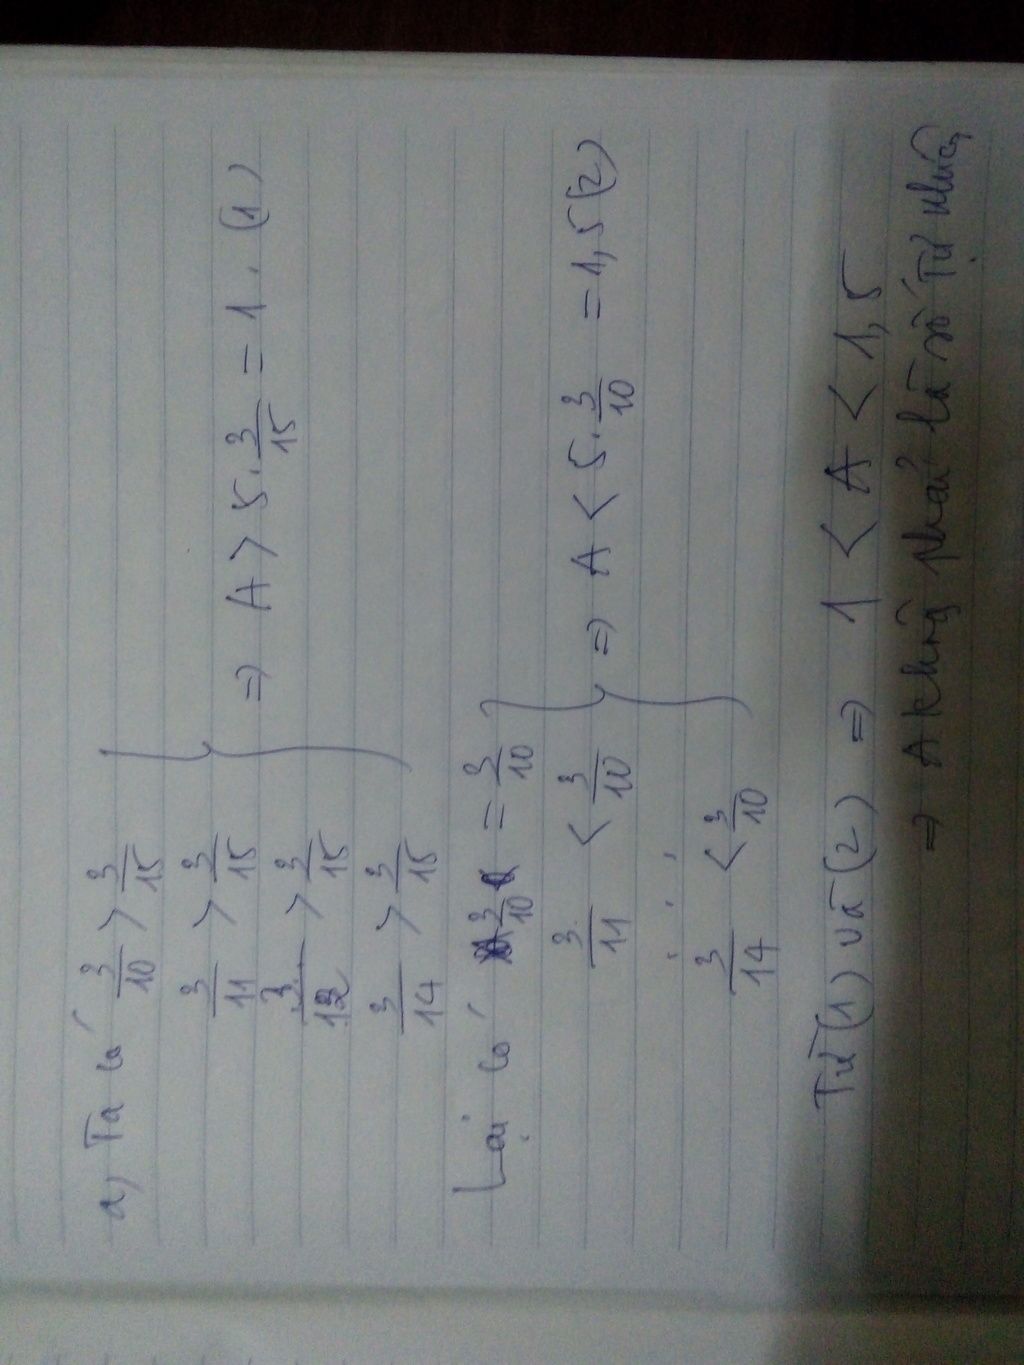 a, Ta có 3/10 > 3/15
3/11 > 3/15
3/12 > 3/15
3/14 > 3/15
⇒ A > 5 . 3/15 = 1 . (1)
Lại có 3/10 = 3/10
3/11 < 3/10
. . .
3/14 < 3/10
⇒ A < 5 . 3/10 = 1,5 (2)
Từ (1) và (2) ⇒ 1 < A < 1,5
⇒ A không phải là số Tự nhiên